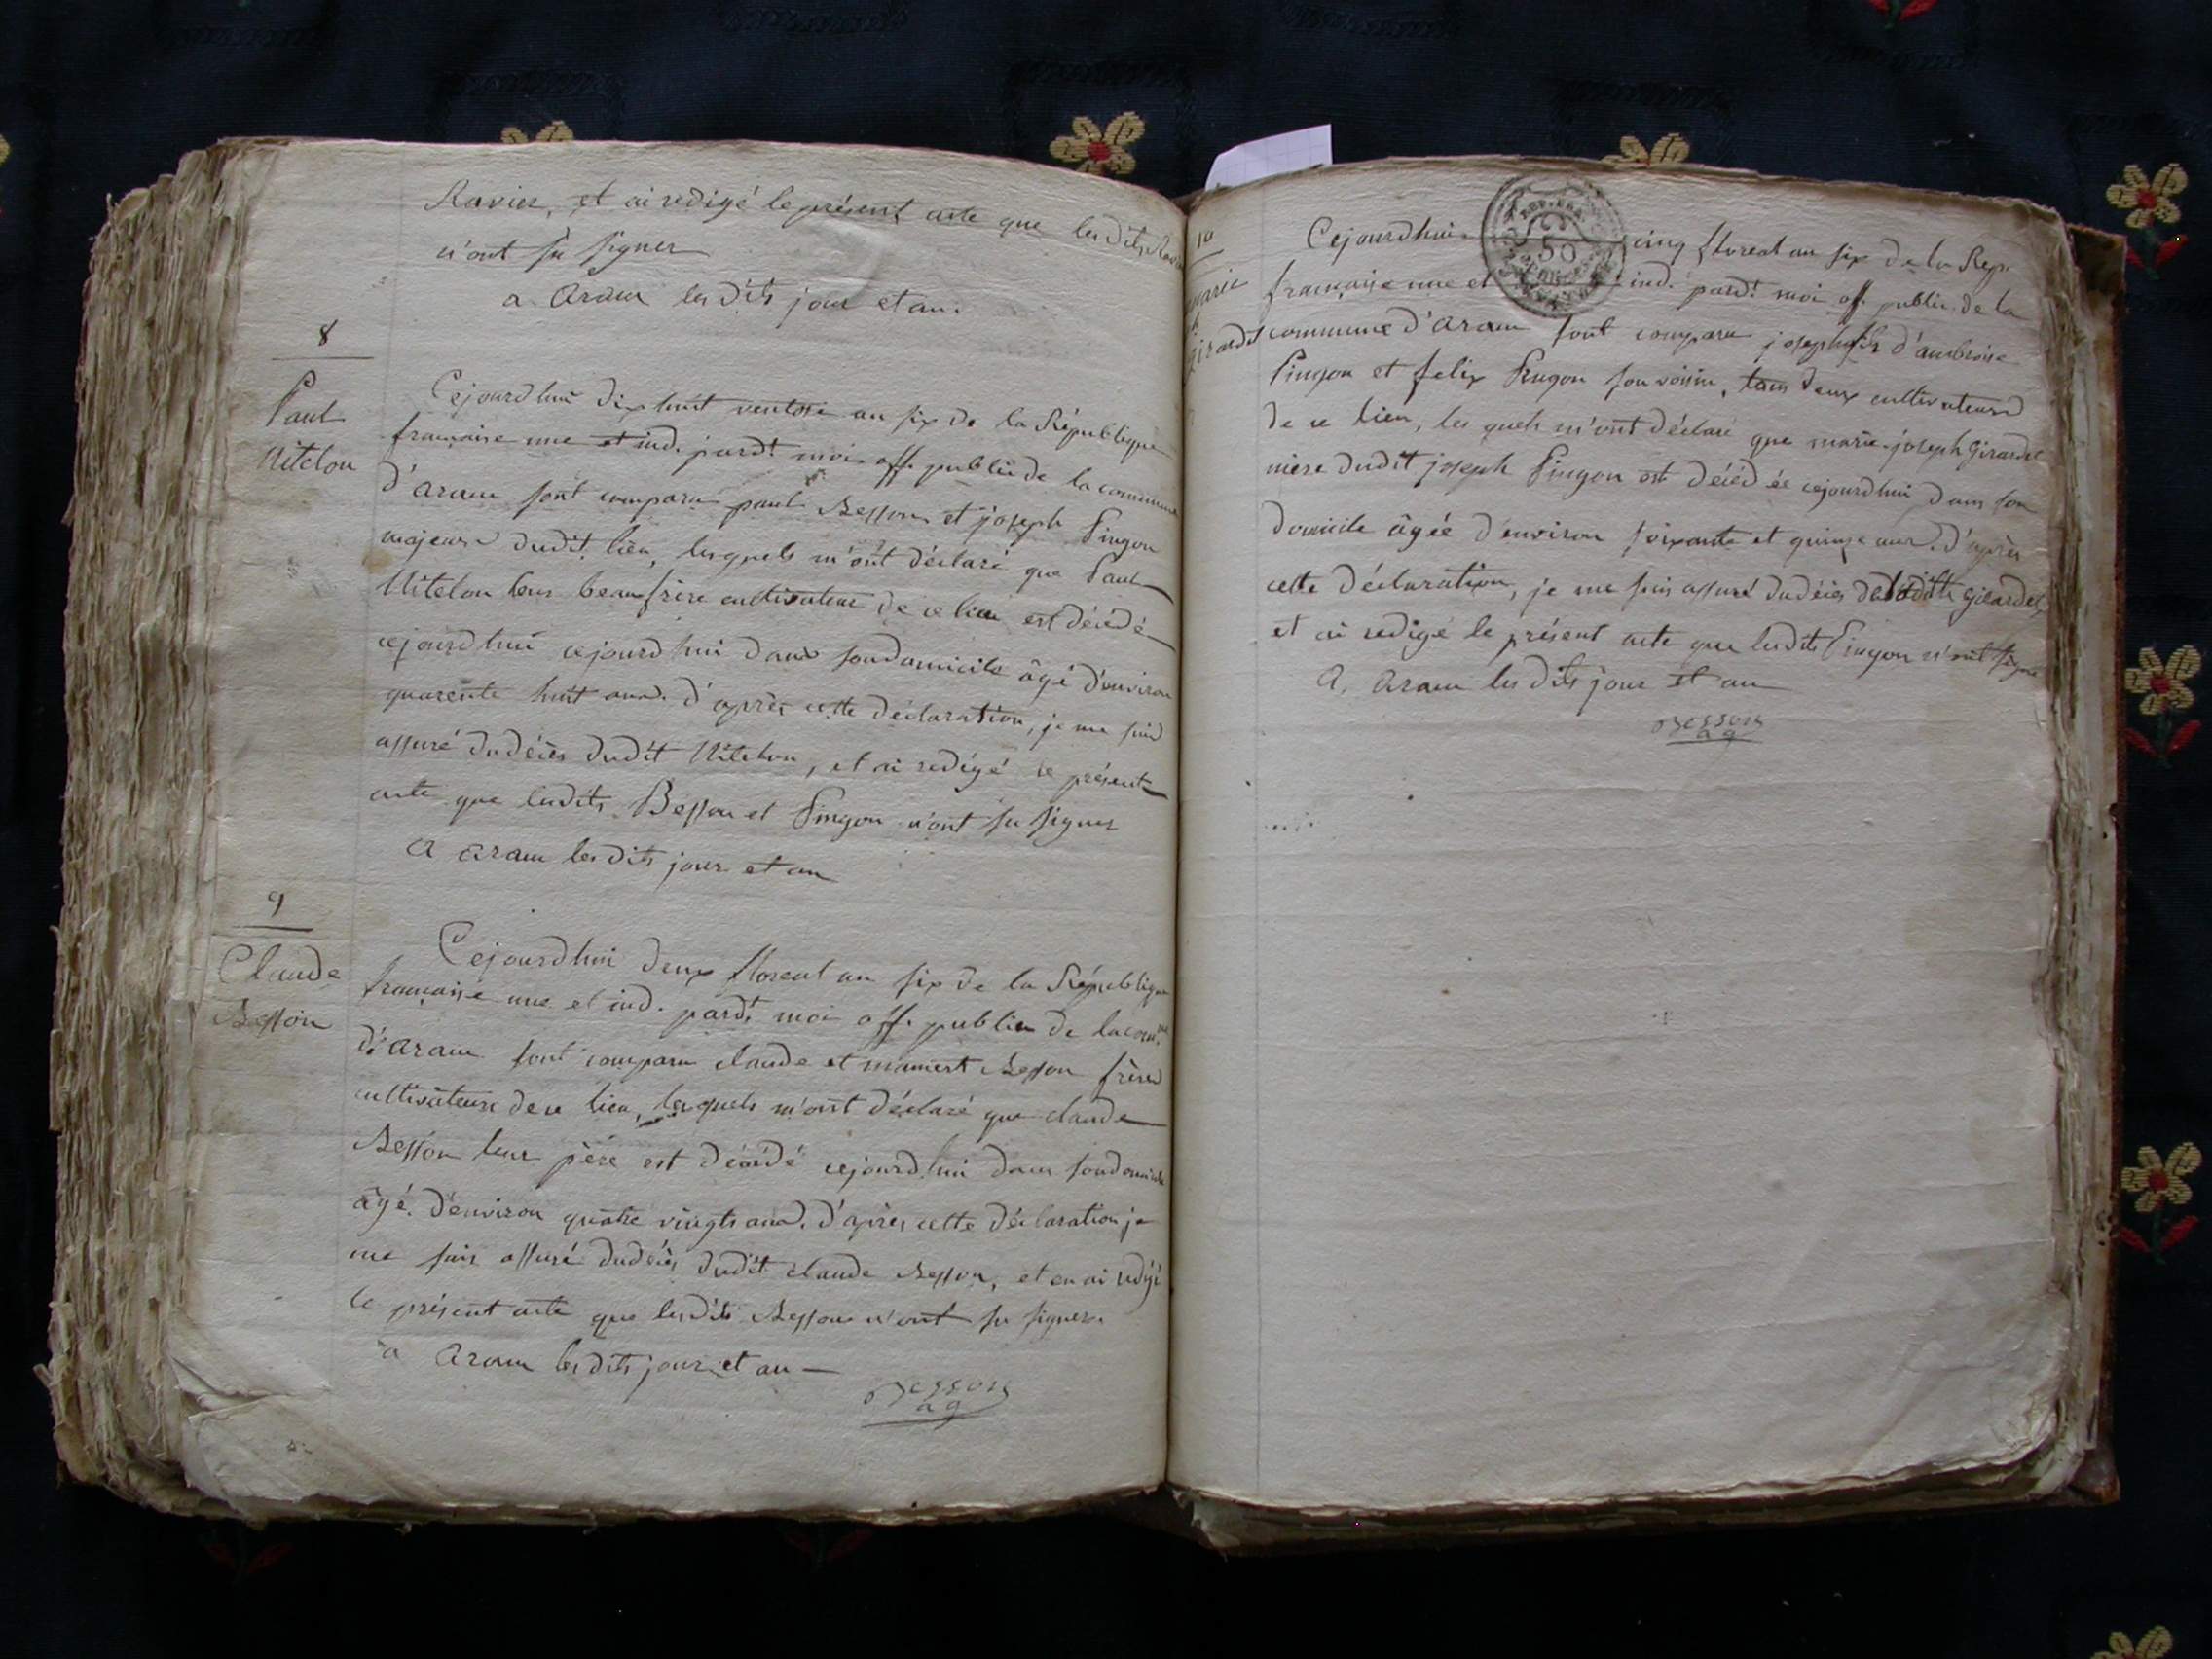 Ravier, et ai redigé le présent acte que lesdits
n'ont su signer
a Aram lesdits jour et an.
8
Paul
Vitelon
Cejourdhui dix huit ventose an six de la République
française une et ind. pardt moi off. public de la commune
d'aram sont comparu paul Besson et joseph Pingon
majeurs dudit lieu, lesquels m'ont déclaré que Paul
Vitelon leur beaufrère cultivateur de ce lieu est décédé
cejourdhui cejourdhui dans son domicile âgé d'environ
quarente huit ans. d'après cette déclaration, je me suis
assuré du décès dudit Vitelon, et ai redigé le présent
acte que lesdits Besson et Pingon n'ont su signer
A aram lesdits jour et an
9
Claude
Besson
Cejourdhui deux floreal an six de la République
française une et ind. pardt moi off. public de la comne
d'aram sont comparu claude et mamert Besson frères
cultivateurs de ce lieu, lesquels m'ont déclaré que claude
Besson leur père est décédé cejourdhui dans son domicile
âgé d'environ quatre vingts ans. d'après cette déclaration je
me suis assuré du décès dudit claude Besson, et en ai redigé
le présent acte que lesdits Besson n'ont su signer.
a Aram lesdits jour et an
Besson
ag
10
marie
Girardet
Cejourdhui cinq floreal an six de la Rep.
française une et ind. pardt moi off. public de la
commune d'Aram sont comparu joseph fils d'ambroise
Pingon et felix Pingon son voisin, tous deux cultivateurs
de ce lieu, les quels m'ont déclaré que marie-joseph Girardet
mere dudit joseph Pingon est décédée cejourdhui dans son
domicile âgée d'environ soixante et quinze ans. d'après
cette déclaration, je me suis assuré du décès de ladite Girardet,
et ai redigé le présent acte que lesdits Pingon n'ont signé
A, Aram lesdits jour et an
Besson
ag
50